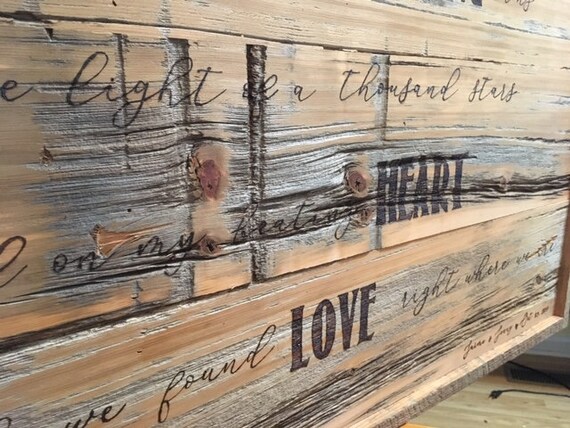 light of a thousand stars
on my beating HEART
we found LOVE right where we